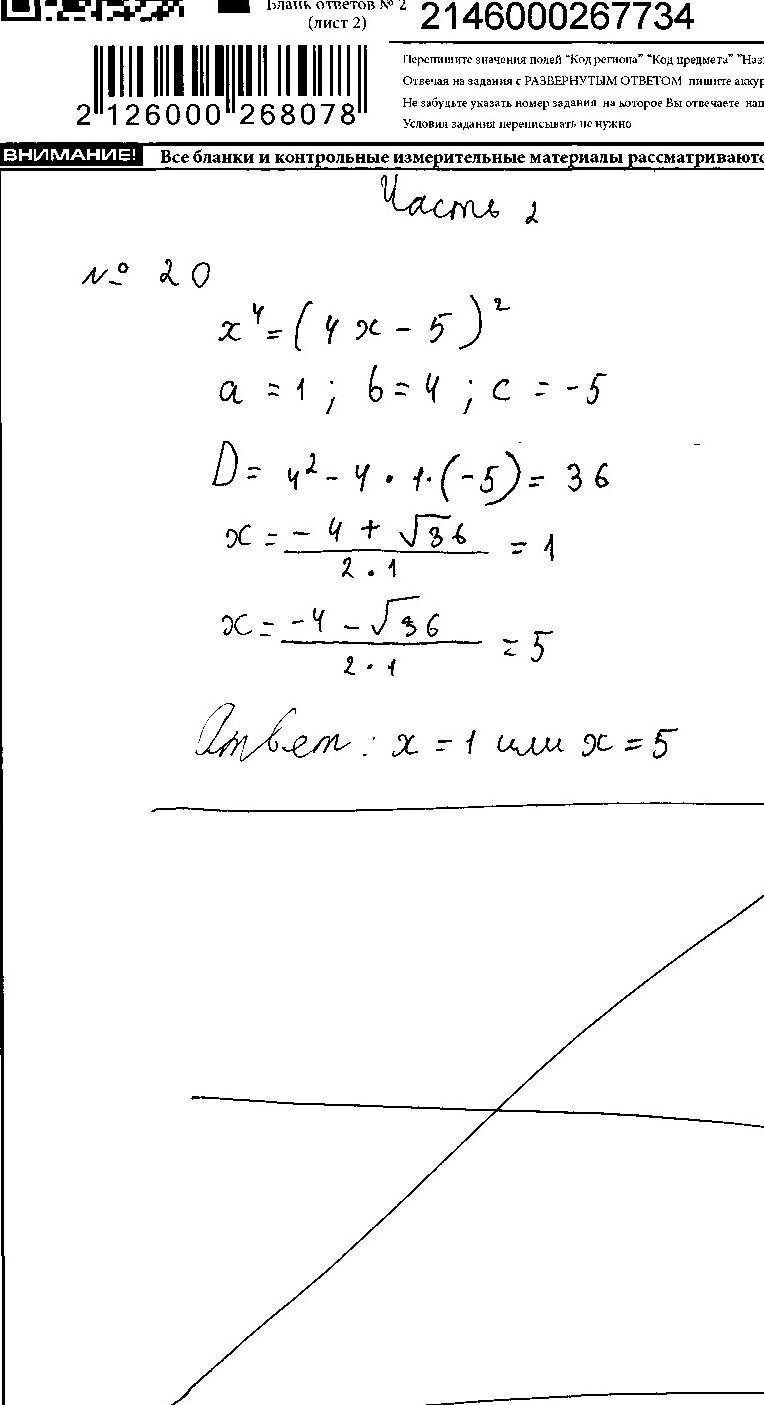 Бланк ответов № 2
(лист 2)
2146000267734
2 126000 268078
Перепишите значения полей "Код региона" "Код предмета"
Отвечая на задания с РАЗВЕРНУТЫМ ОТВЕТОМ пишите
Не забудьте указать номер задания на которое Вы отвечаете
Условия задания переписывать не нужно
ВНИМАНИЕ! Все бланки и контрольные измерительные материалы
Часть 2
№ 20
x⁴=(4x-5)²
a=1; b=4; c=-5
D=4²-4·1·(-5)=36
x=(-4+√36)/(2·1)=1
x=(-4-√36)/(2·1)=5
Ответ: x=1 или x=5